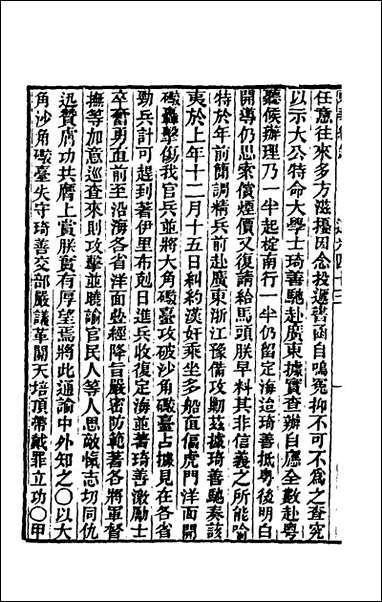 任意往來多方滋擾因念投遞書函自鳴冤抑不可不爲之查究
以示大公特命大學士琦善馳赴廣東據實查辦自應全數赴粵
聽候辦理乃一半起椗南行一半仍留定海迨琦善抵粵後明白
開導仍思索償煙價又復請給馬頭朕早料其非信義之所能喻
特於年前簡調精兵赴廣東浙江豫備攻勦茲據琦善馳奏該
夷於上年十二月十五日糾約漢奸乘坐多船直偪虎門洋面開
礮轟擊傷我官兵並將大角礮臺攻破沙角礮臺占據見在各省
勁兵計可趕到著伊里布剋日進兵收復定海並著琦善激勵士
卒奮勇直前至沿海各省洋面疊經降旨嚴密防範著各將軍督
撫等加意巡查來則攻擊並曉諭官民人等人思敵愾志切同仇
迅贊膚功共膺上賞朕實有厚望焉將此通諭中外知之〇以大
角沙角礮臺失守琦善交部嚴議革關天培頂帶戴罪立功〇甲